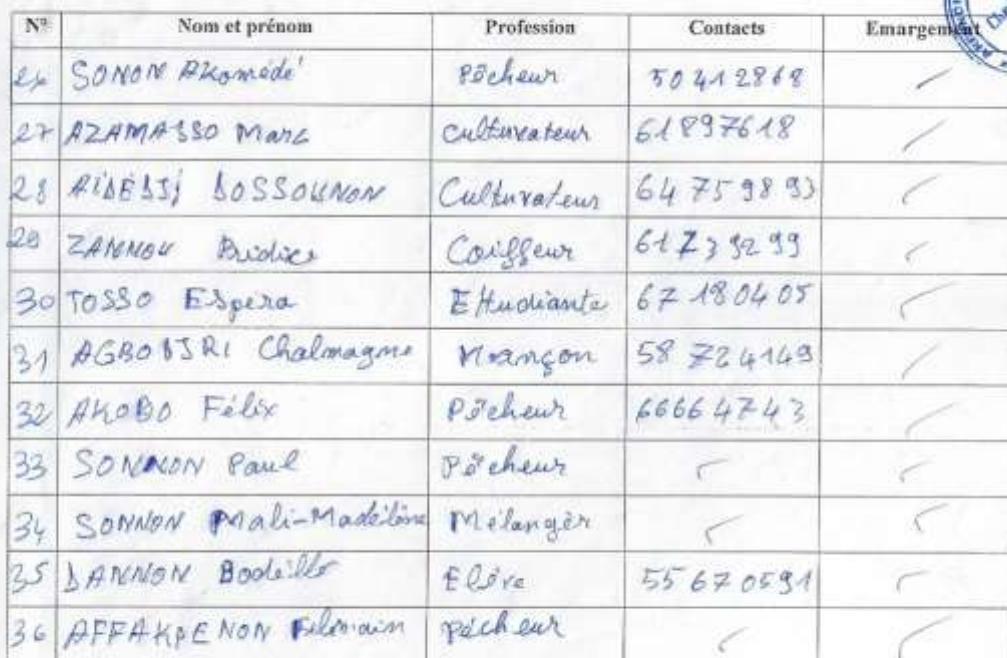 N° Nom et prénom Profession Contacts Emargement
26 SONON AKomédé Pêcheur 50412868
27 AZAMASSO Marc Cultuvateur 61897618
28 AÏDÉDJI DOSSOUNON Cultuvateur 64759893
29 ZANNOU Coiffeur 61739299
30 TOSSO Espéra Ettudiante 67180405
31 Chalmagne Maançon 58724149
32 AKOBO Félix Pêcheur 66664743
33 SONNON Paul Pêcheur
34 SONNON Mali-Madélène Mélangèr
35 DANNON Elève 55670591
36 AFFAKPENON Pêcheur